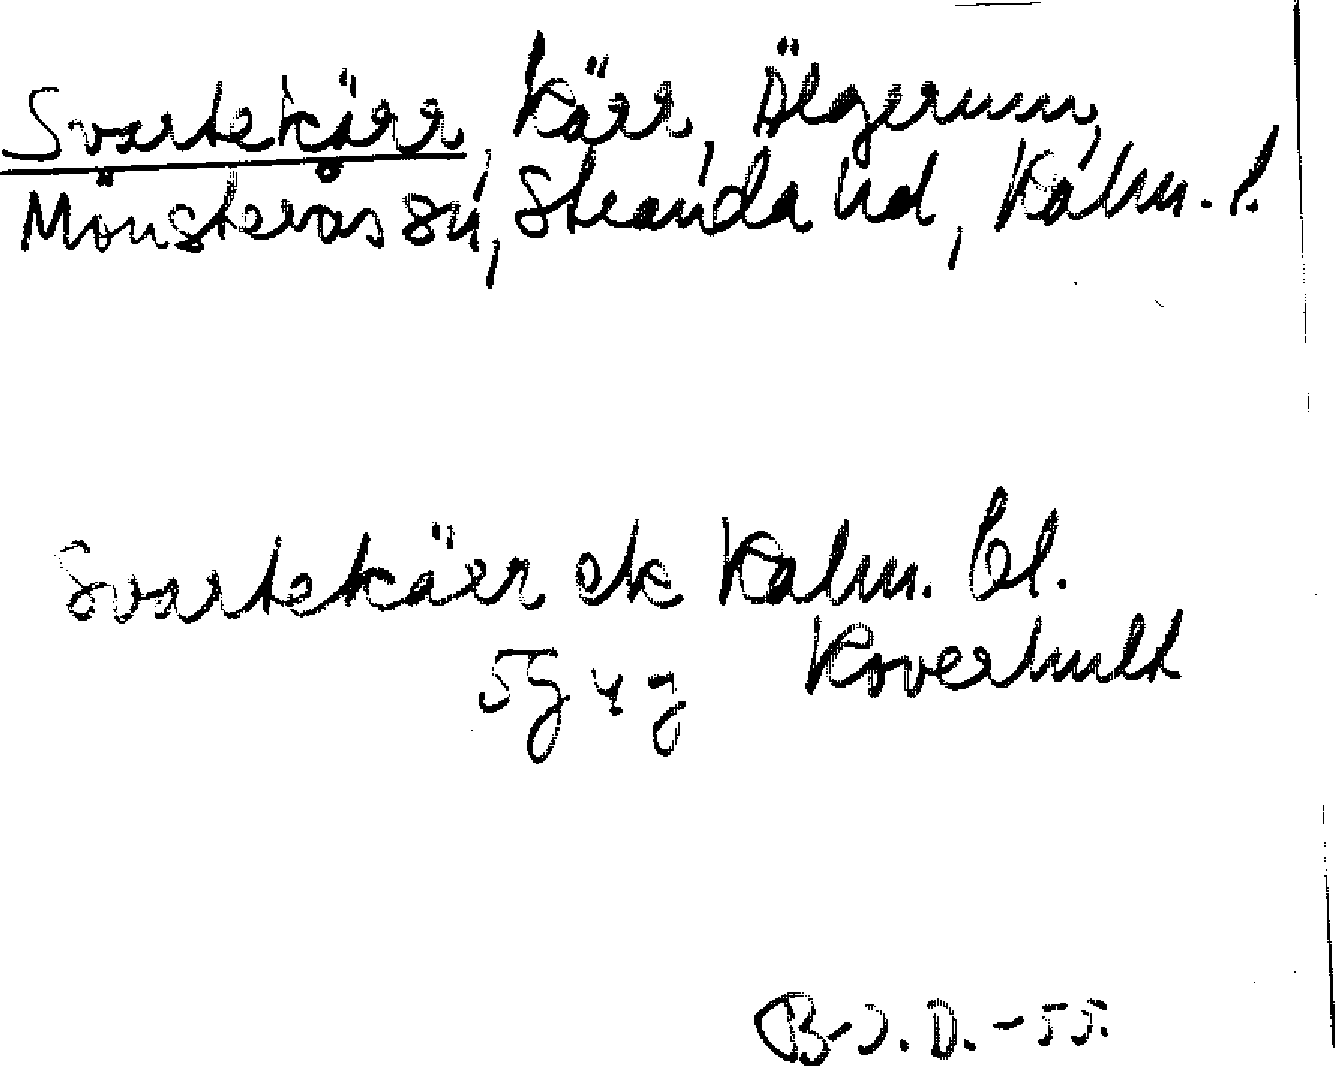 Svartekärr, Kärr, Älgerum,
Mönsterås sn, Stranda hd, Kalm. l.
Svartekärr ek Kalm. bl.
5g4g Koverhult
B-J.D.-55.